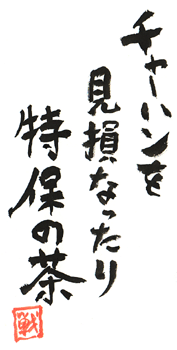 チャーハンを
見損なったり
特保の茶
戦